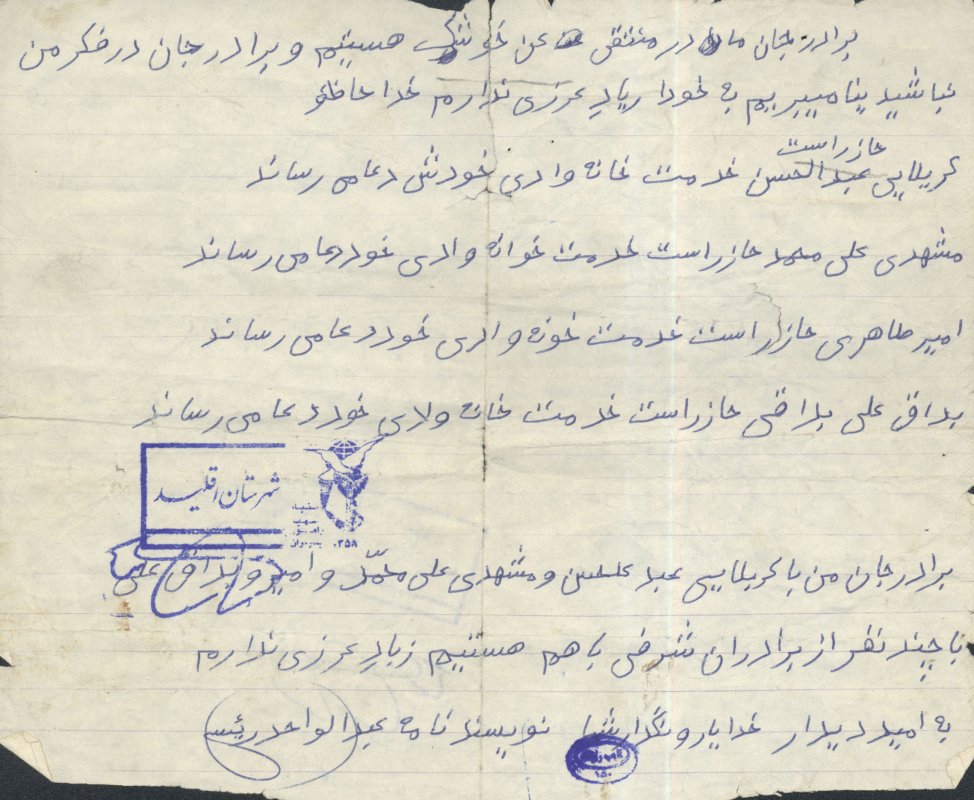 برادر جان ما در منتقی عن خوشک هستیم و برادر جان در فکر من
نباشید بنا میبریم به خودا زیاد عرزی ندارم خدا حافظ
حازر است
کربلایی عبدالحسن خدمت خانه وادی خودش دعا می رساند
مشهدی علی محمد حازر است خدمت خوانه وادی خود دعا می رساند
امیر طاهری حازر است خدمت خونه وادی خود دعا می رساند
بداق علی بداقی حازر است خدمت خانه وادی خود دعا می رساند
شهرستان اقلید
۰۲۵۸
برادر جان من با کربلایی عبد و مشهدی علی محمّد و امیر و بداق علی
با چند نفر از برادران شرفی با هم هستیم زیاد عرزی ندارم
به امید دیدار خدا یار و نگدار شما نویسند نامه عبدالواحد رئیسی